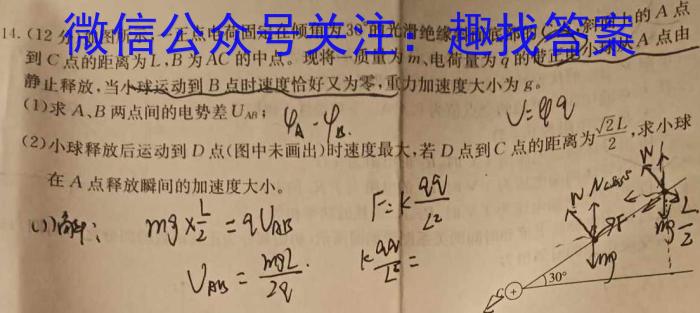 微信公众号关注：趣找答案
14.(12分 点电荷固定在倾角为30°的光滑绝缘 斜面上的A点
到C点的距离为L,B为AC的中点。现将一质量为m、电荷量为q的带正电小球从A点由
静止释放,当小球运动到B点时速度恰好又为零,重力加速度大小为g。
(1)求A、B两点间的电势差UAB;
φA-φB
(2)小球释放后运动到D点(图中未画出)时速度最大,若D点到C点的距离为√2L/2,求小球
在A点释放瞬间的加速度大小。
mg×L/2=qUAB
UAB=mgL/2q
F=k qq/L²
k qq/L²=
N
N
mg
mg
L/2
C
+
30°